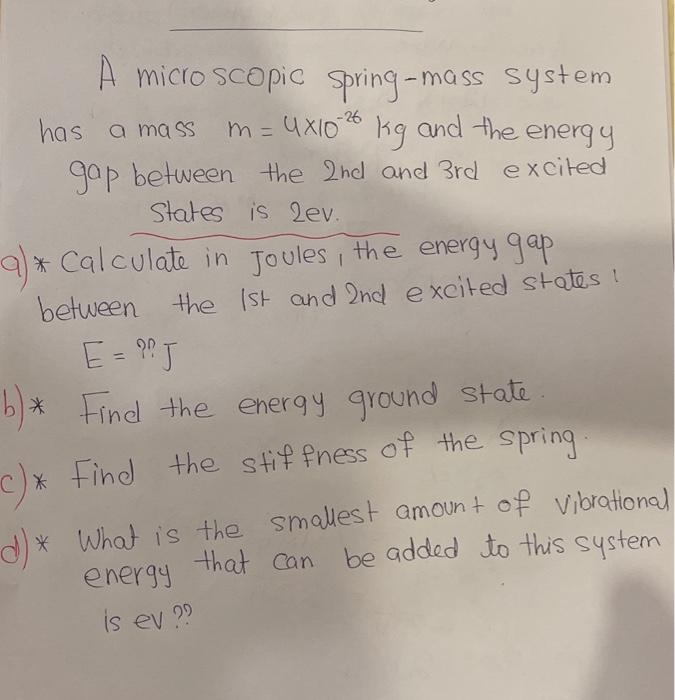 A microscopic spring-mass system
has a mass m = 4x10⁻²⁶ kg and the energy
gap between the 2nd and 3rd excited
States is 2ev.
a) * Calculate in Joules, the energy gap
between the 1st and 2nd excited states!
E = ?? J
b) * Find the energy ground state.
c) * Find the stiffness of the spring.
d) * What is the smallest amount of vibrational
energy that can be added to this system
is ev ??